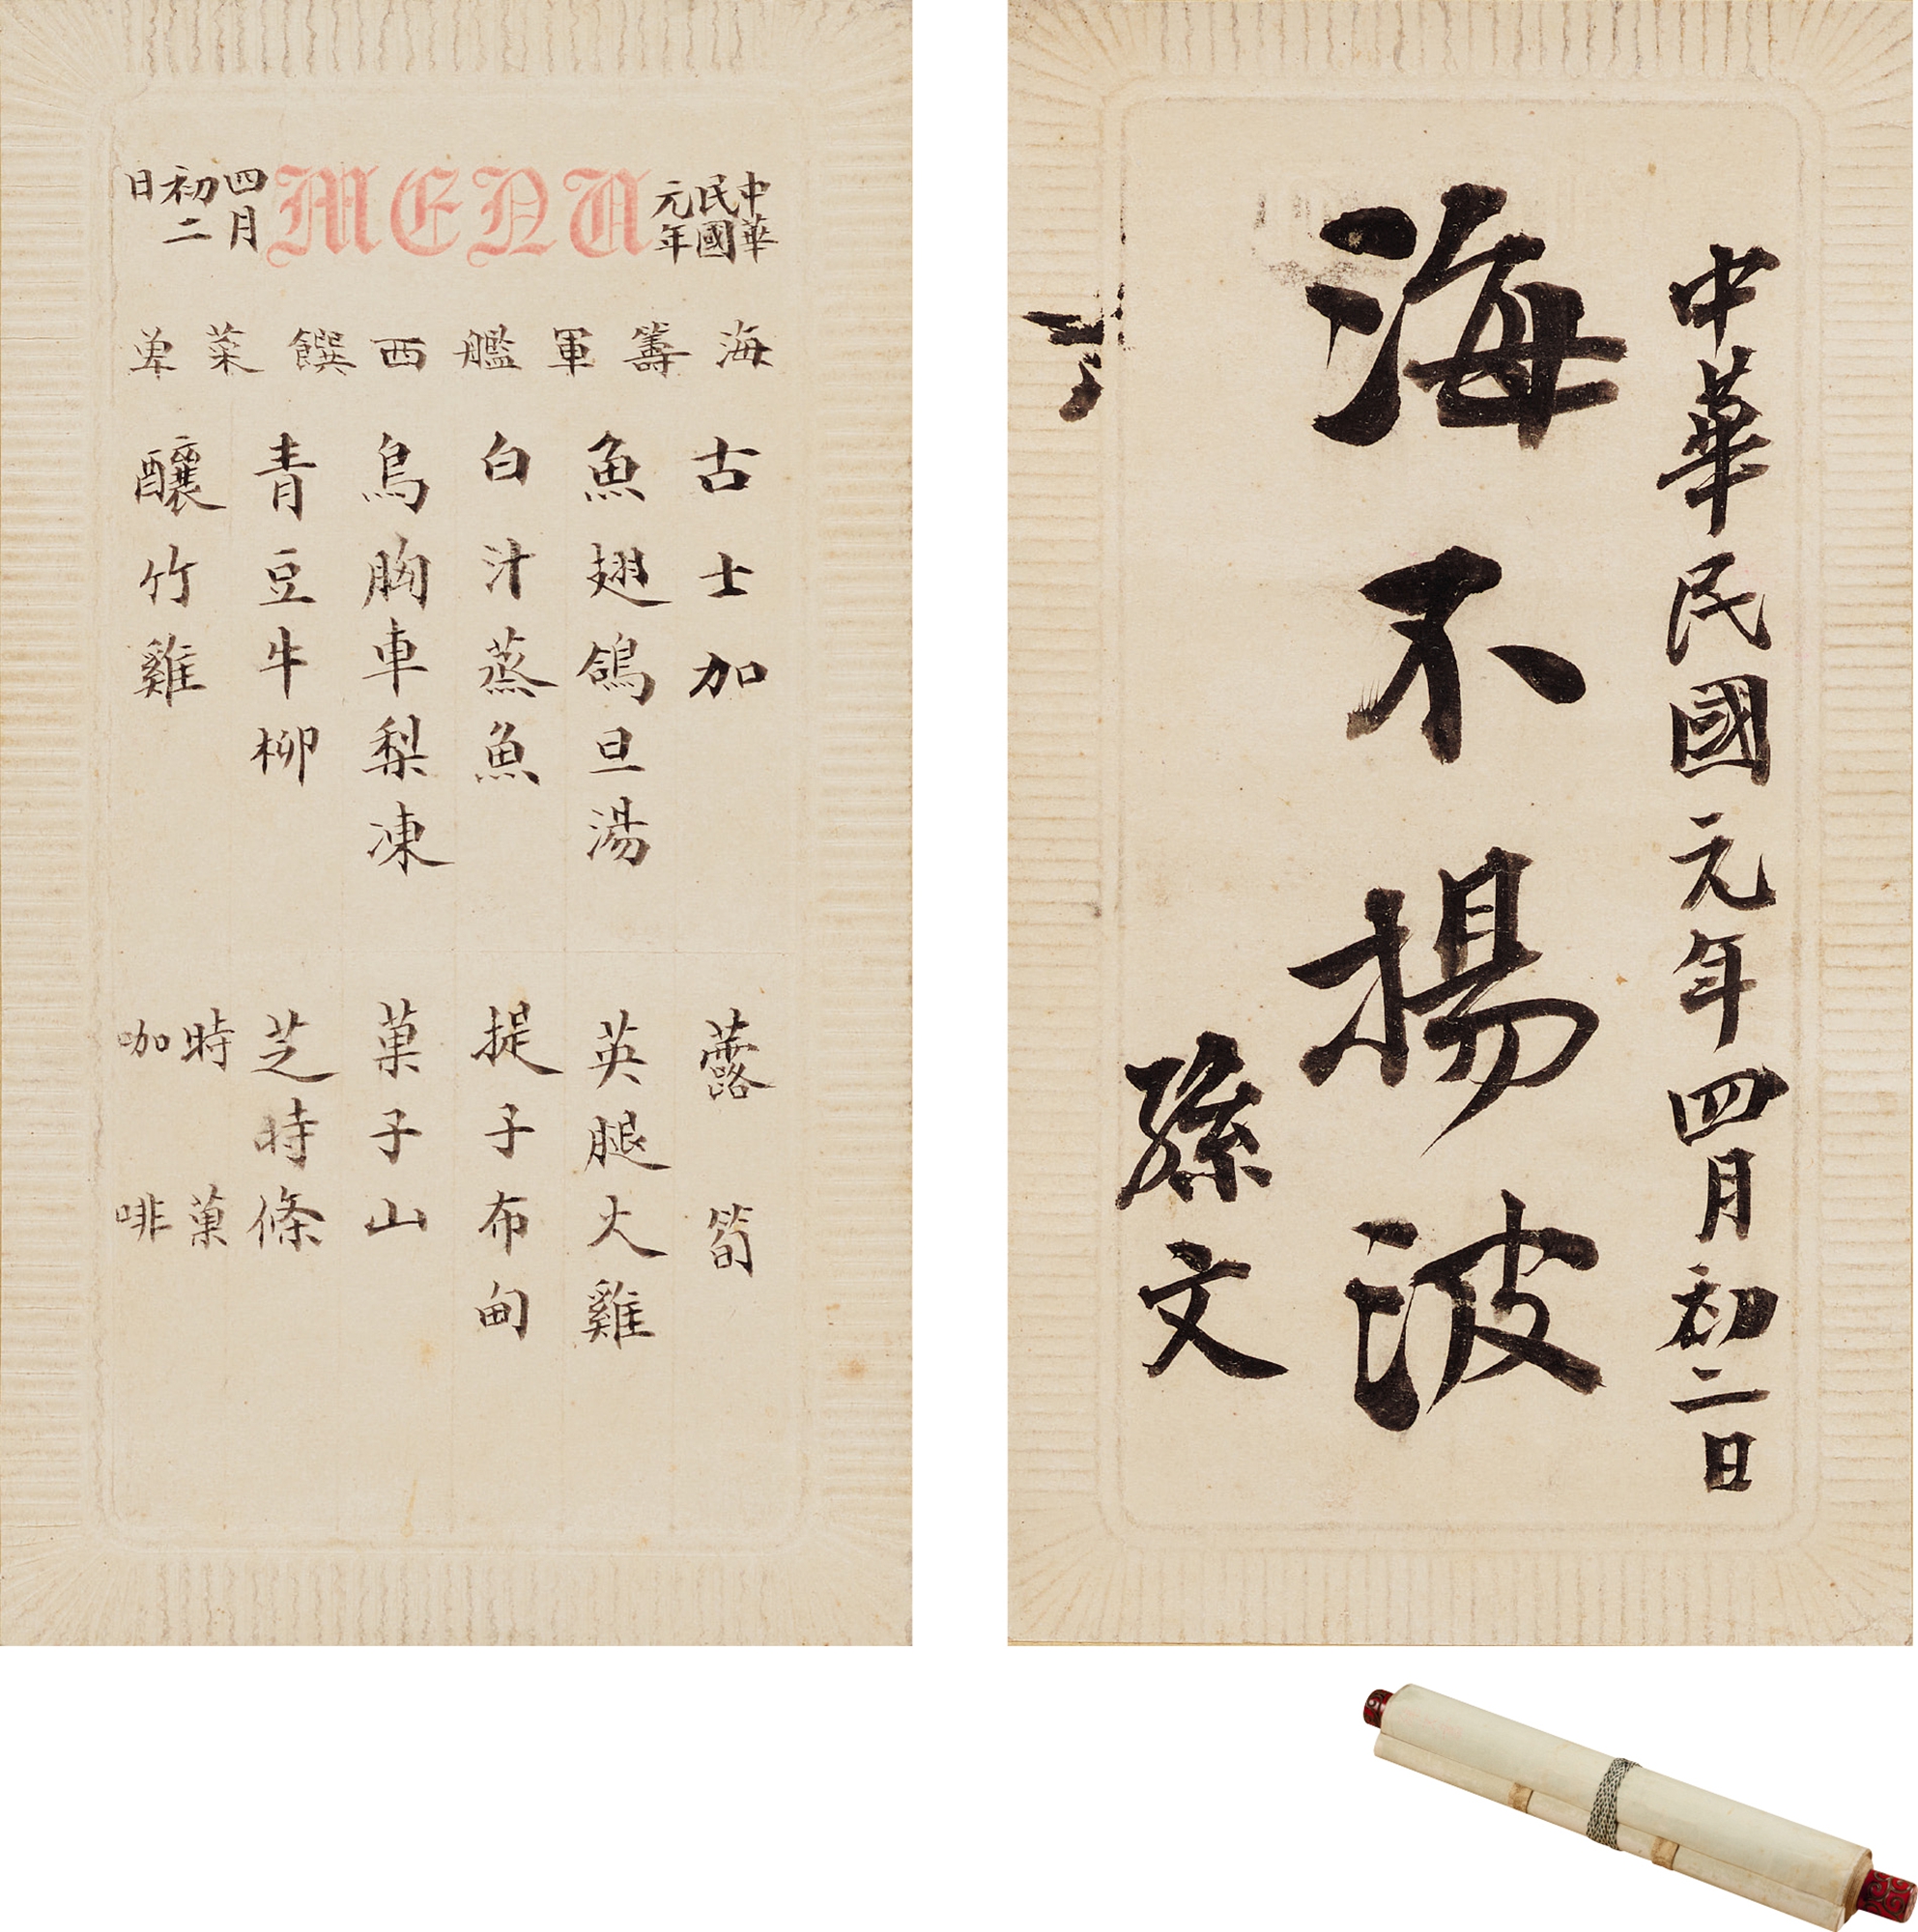 中華民國元年
MENU
四月初二日
海籌軍艦西饌菜單
古士加
魚翅鴿旦湯
白汁蒸魚
烏胸車梨凍
青豆牛柳
釀竹雞
虂筍
英腿火雞
提子布甸
菓子山
芝時條
時菓
咖啡
中華民國元年四月初二日
海不揚波
孫文